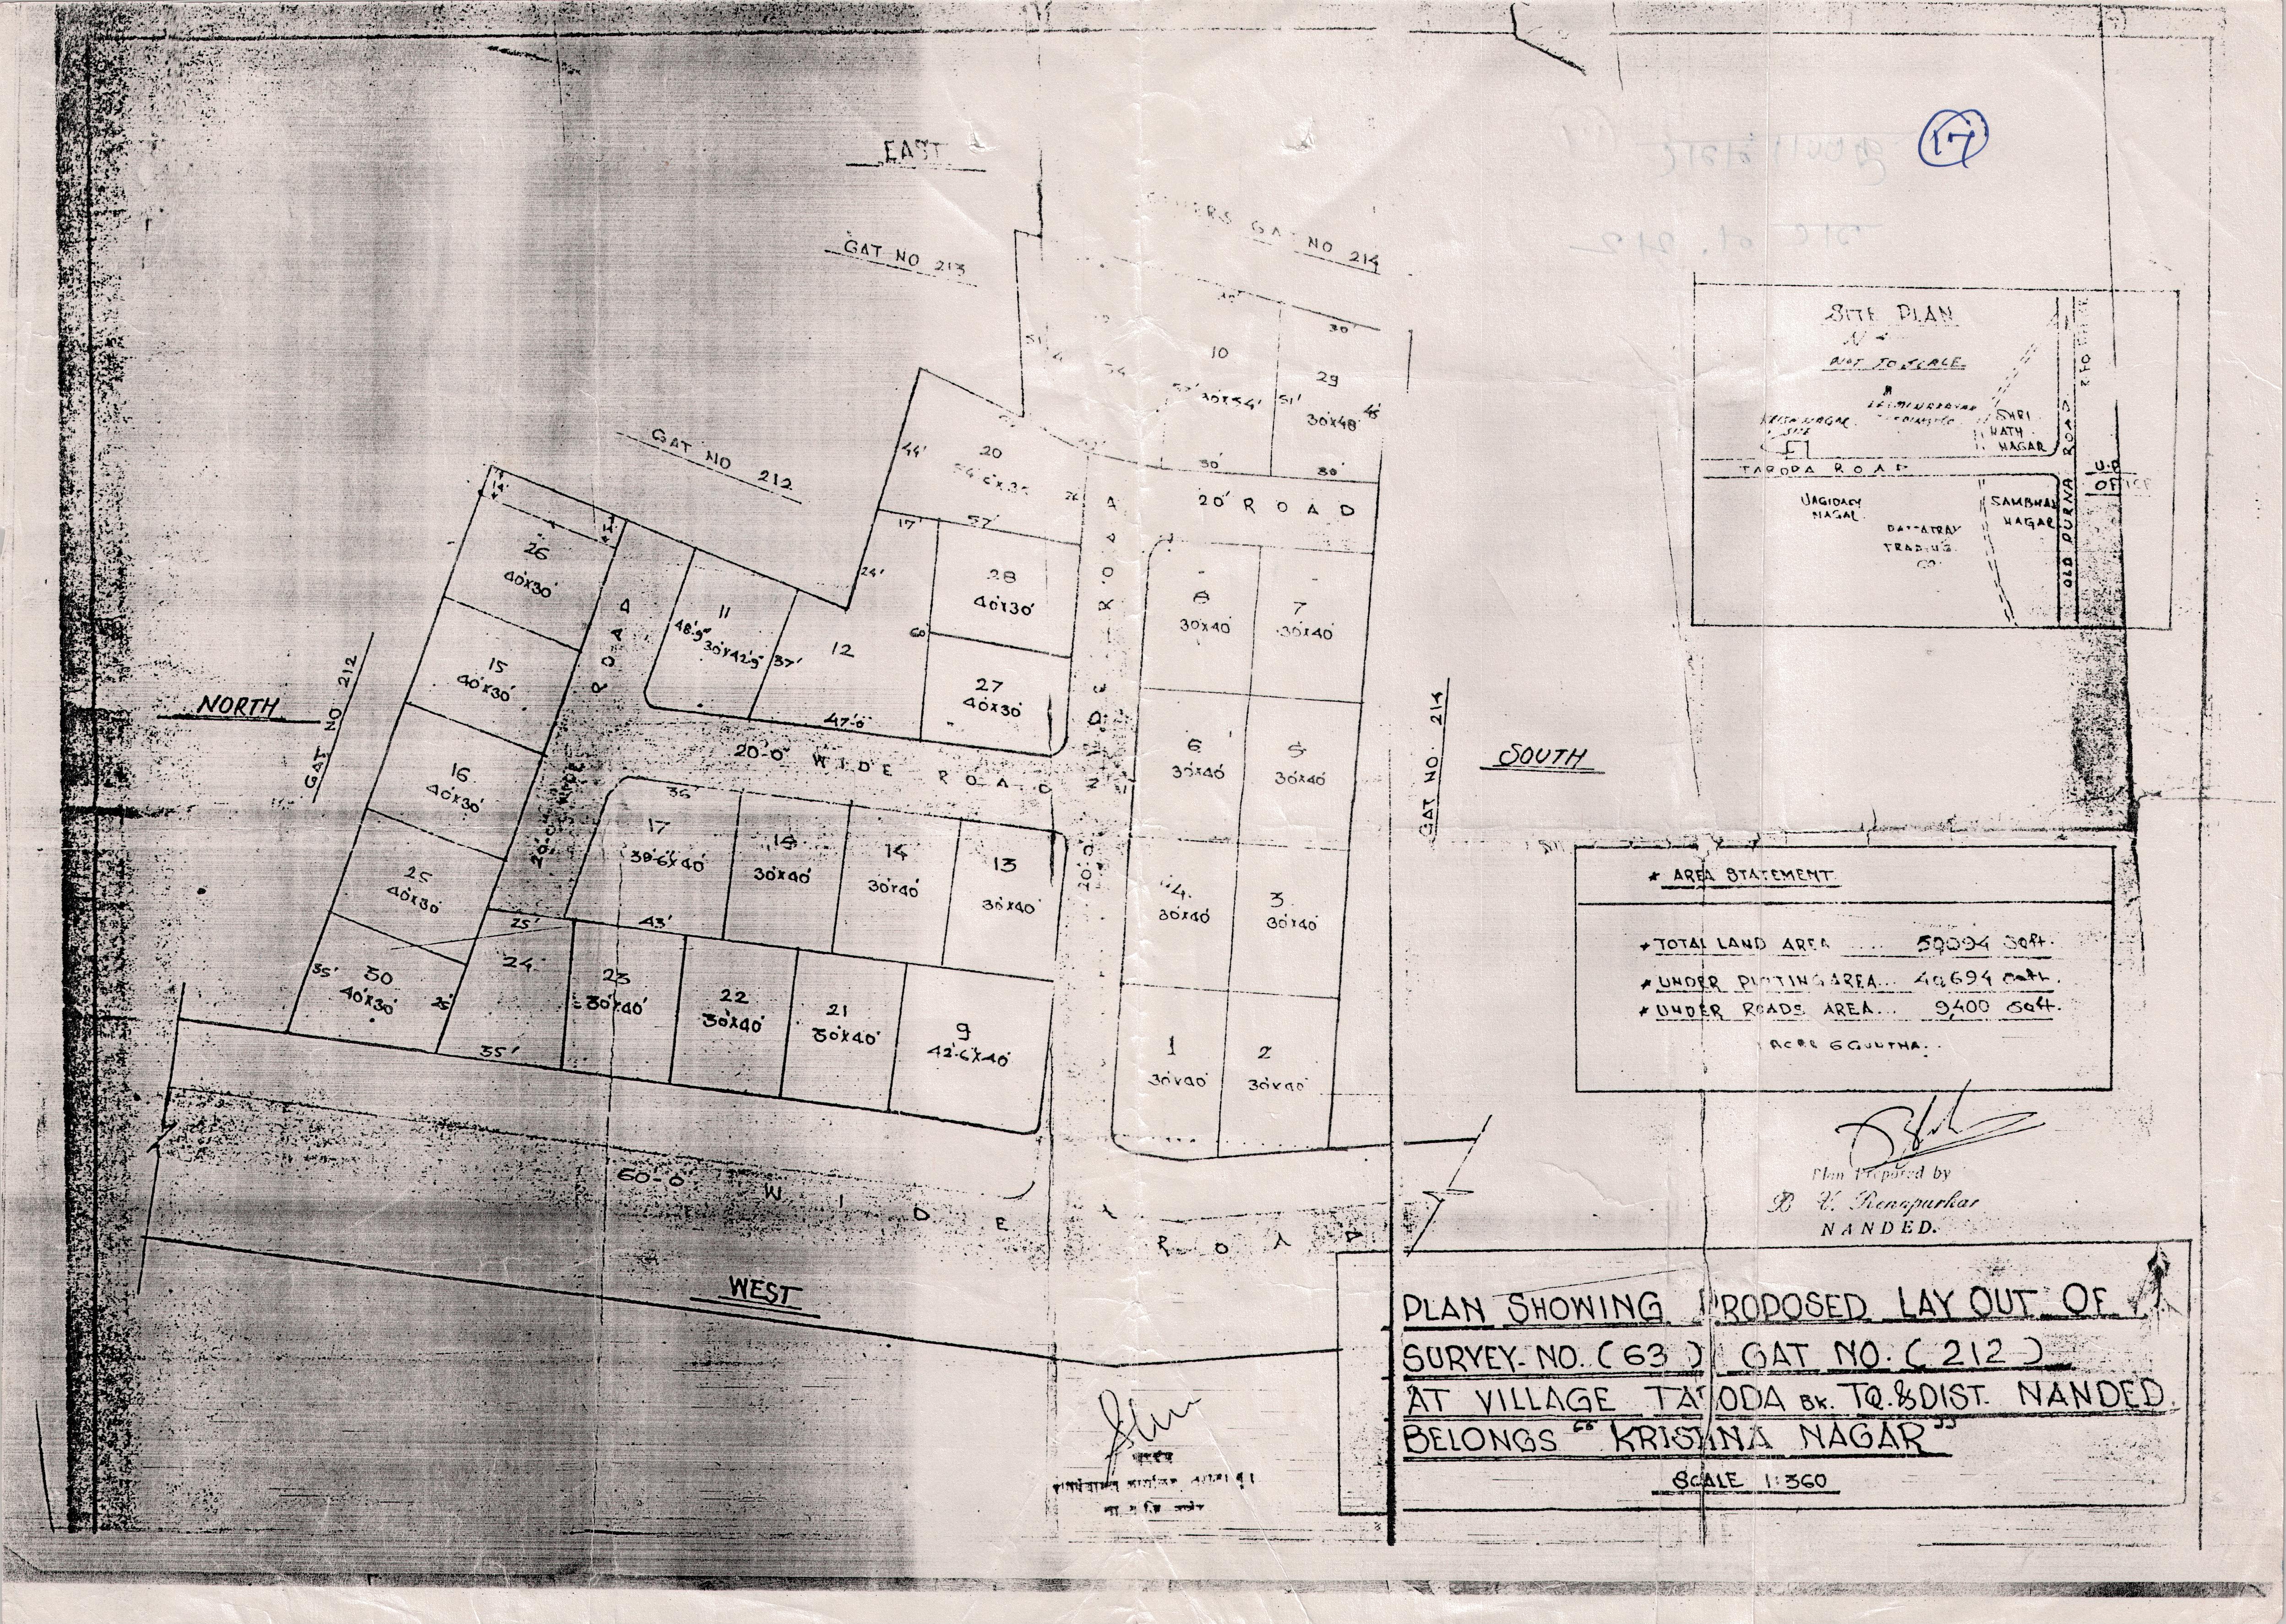 17
EAST
GAT NO 213
GAT NO 214
GAT NO 212
NORTH
GAT NO 212
SOUTH
GAT NO. 214
WEST
10
30'x54'
51'
30'
29
30'x48'
30'
30'
30'
20' ROAD
44'
20
57'
17'
24'
60'
28
40'x30'
27
40'x30'
26
40'x30'
15
40'x30'
16
40'x30'
25
40'x30'
35'
30
40'x30'
25'
ROAD
11
48'.9"
30'x42'9"
37'
12
47'-0"
20'-0" WIDE ROAD
20'-0" WIDE ROAD
36'
17
38'-6"x40'
43'
18
30'x40'
14
30'x40'
13
30'x40'
25'
24
35'
23
30'x40'
22
30'x40'
21
30'x40'
9
42'-6"x40'
8
30'x40'
7
30'x40'
6
30'x40'
5
30'x40'
4
30'x40'
3
30'x40'
1
30'x40'
2
30'x40'
60'-0" WIDE ROAD
SITE PLAN
N
NOT TO SCALE
SITE
SHRI
NATH
NAGAR
TARODA ROAD
NAGAR
SAMBHAJI
NAGAR
DATTATRAY
TRADING
CO.
OLD PURNA ROAD
OFFICE
* AREA STATEMENT
* TOTAL LAND AREA .... 50094 Sqft.
* UNDER PLOTING AREA... 40694 Sqft.
* UNDER ROADS AREA... 9400 Sqft.
Plan Prepared by
B V. Renapurkar
NANDED.
PLAN SHOWING PROPOSED LAY OUT OF
SURVEY-NO. (63) GAT NO. (212)
AT VILLAGE TARODA BK. TQ.&DIST. NANDED.
BELONGS "KRISHNA NAGAR"
SCALE 1:360